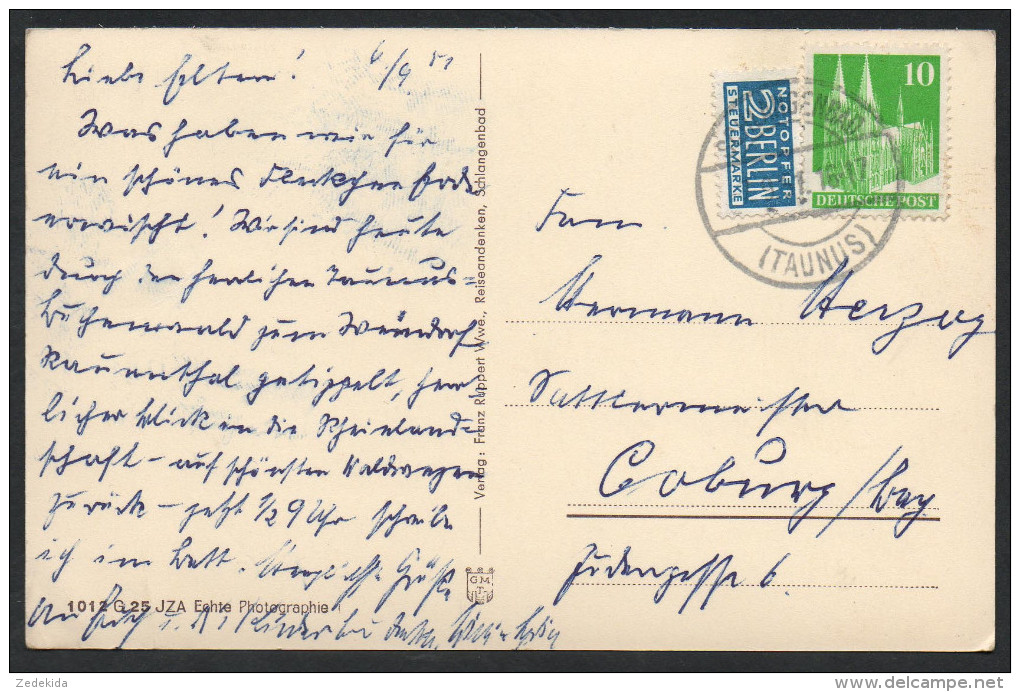 6/9 51
Liebe Eltern!
Was haben wir für
ein schönes Fleckchen Erde
erwischt! Wir sind heute
durch den herrlichen Taunus-
Buchenwald zum Weindorf
Rauenthal getippelt, herr
licher Blick in die Rheinland-
schaft – auf schönsten Waldwegen
zurück – jetzt ½ 9 Uhr schreibe
ich im Bett. Herzl. Grüße
an Euch u. Kinder
1012 G 25 JZA Echte Photographie
Verlag: Franz Ruppert Wwe., Reiseandenken, Schlangenbad
GM
NOTOPFER
2 BERLIN
STEUERMARKE
10
DEUTSCHE POST
GENBAD
(TAUNUS)
Hermann Herzog
Sattlermeister
Coburg/Bay
Judengasse 6
Zedekida
delcampe.net